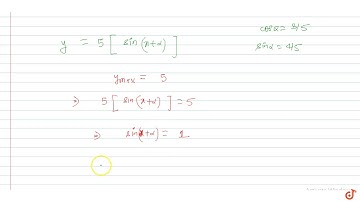 y = 5 [ sin(x+α) ]
cosα = 3/5
sinα = 4/5
ymax = 5
⇒ 5 [ sin(x+α) ] = 5
⇒ sin(x+α) = 1